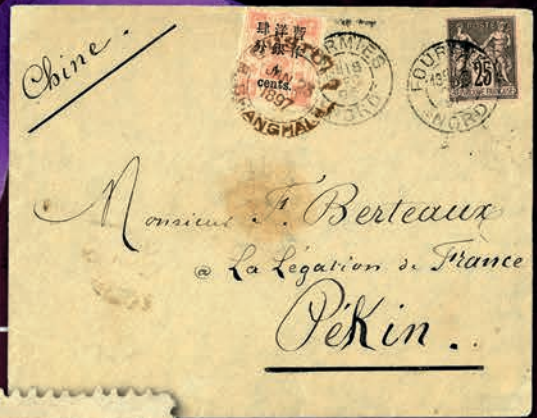 Chine.
暫洋肆
作銀分
4
cents.
JAN 23
1897
SHANGHAI
FOURMIES
NORD
POSTE
25
FOURMIES
NORD
Monsieur F. Berteaux
@ La Légation de France
Pékin.